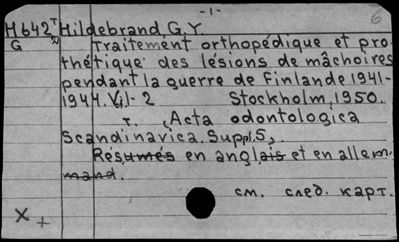 -1-
6
H642 T Hildebrand, G.Y.
G 2 Traitement orthopédique et pro
thétique des lésions de mâchoires
pendant la guerre de Finlande 1941-
1944. V,1-2 Stockholm, 1950.
т. , Acta odontologica
Scandinavica. Suppl. 5,
Résumés en anglais et en allem.
mand.
см. след. карт.
X +